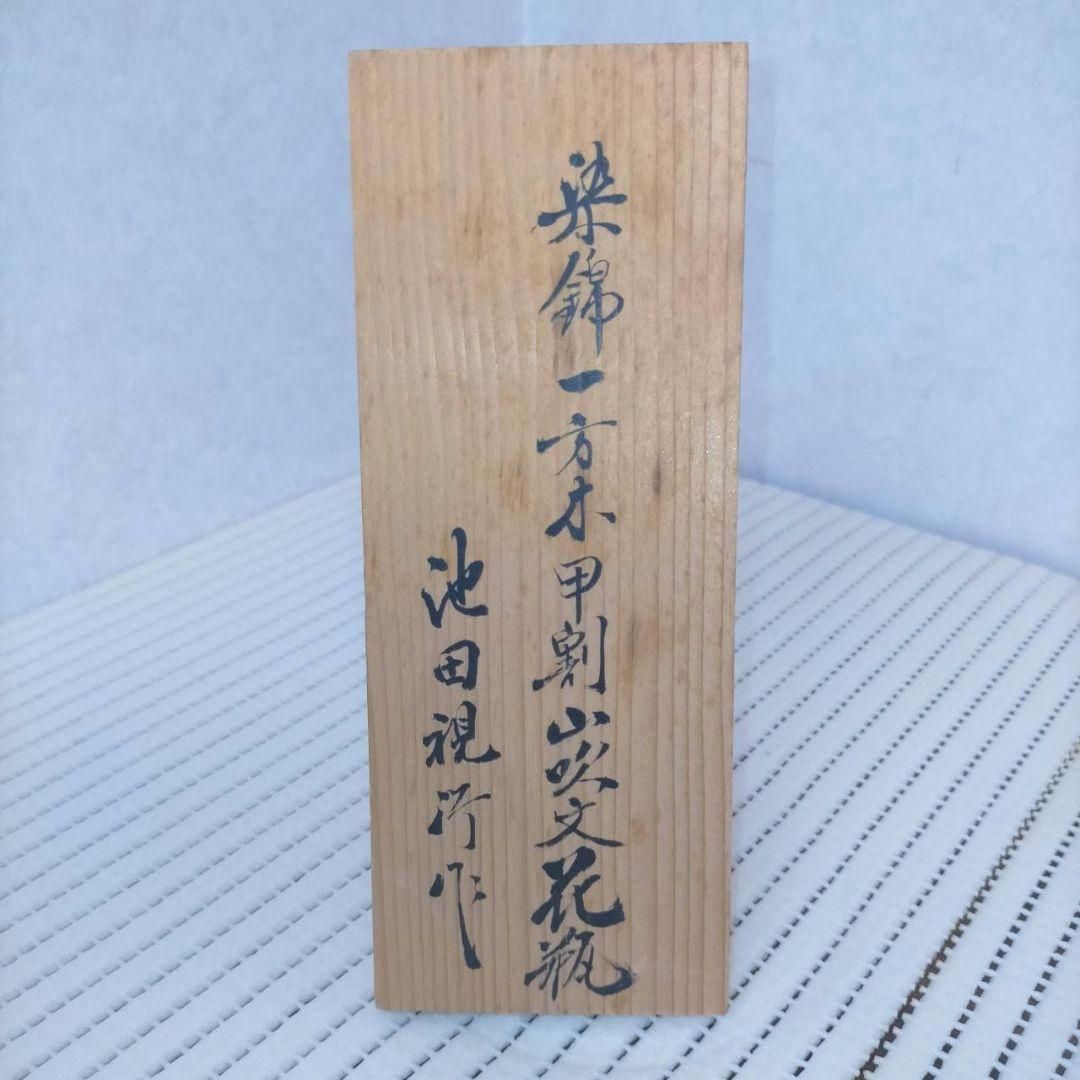 染錦一方木甲割山吹文花瓶
池田視行作